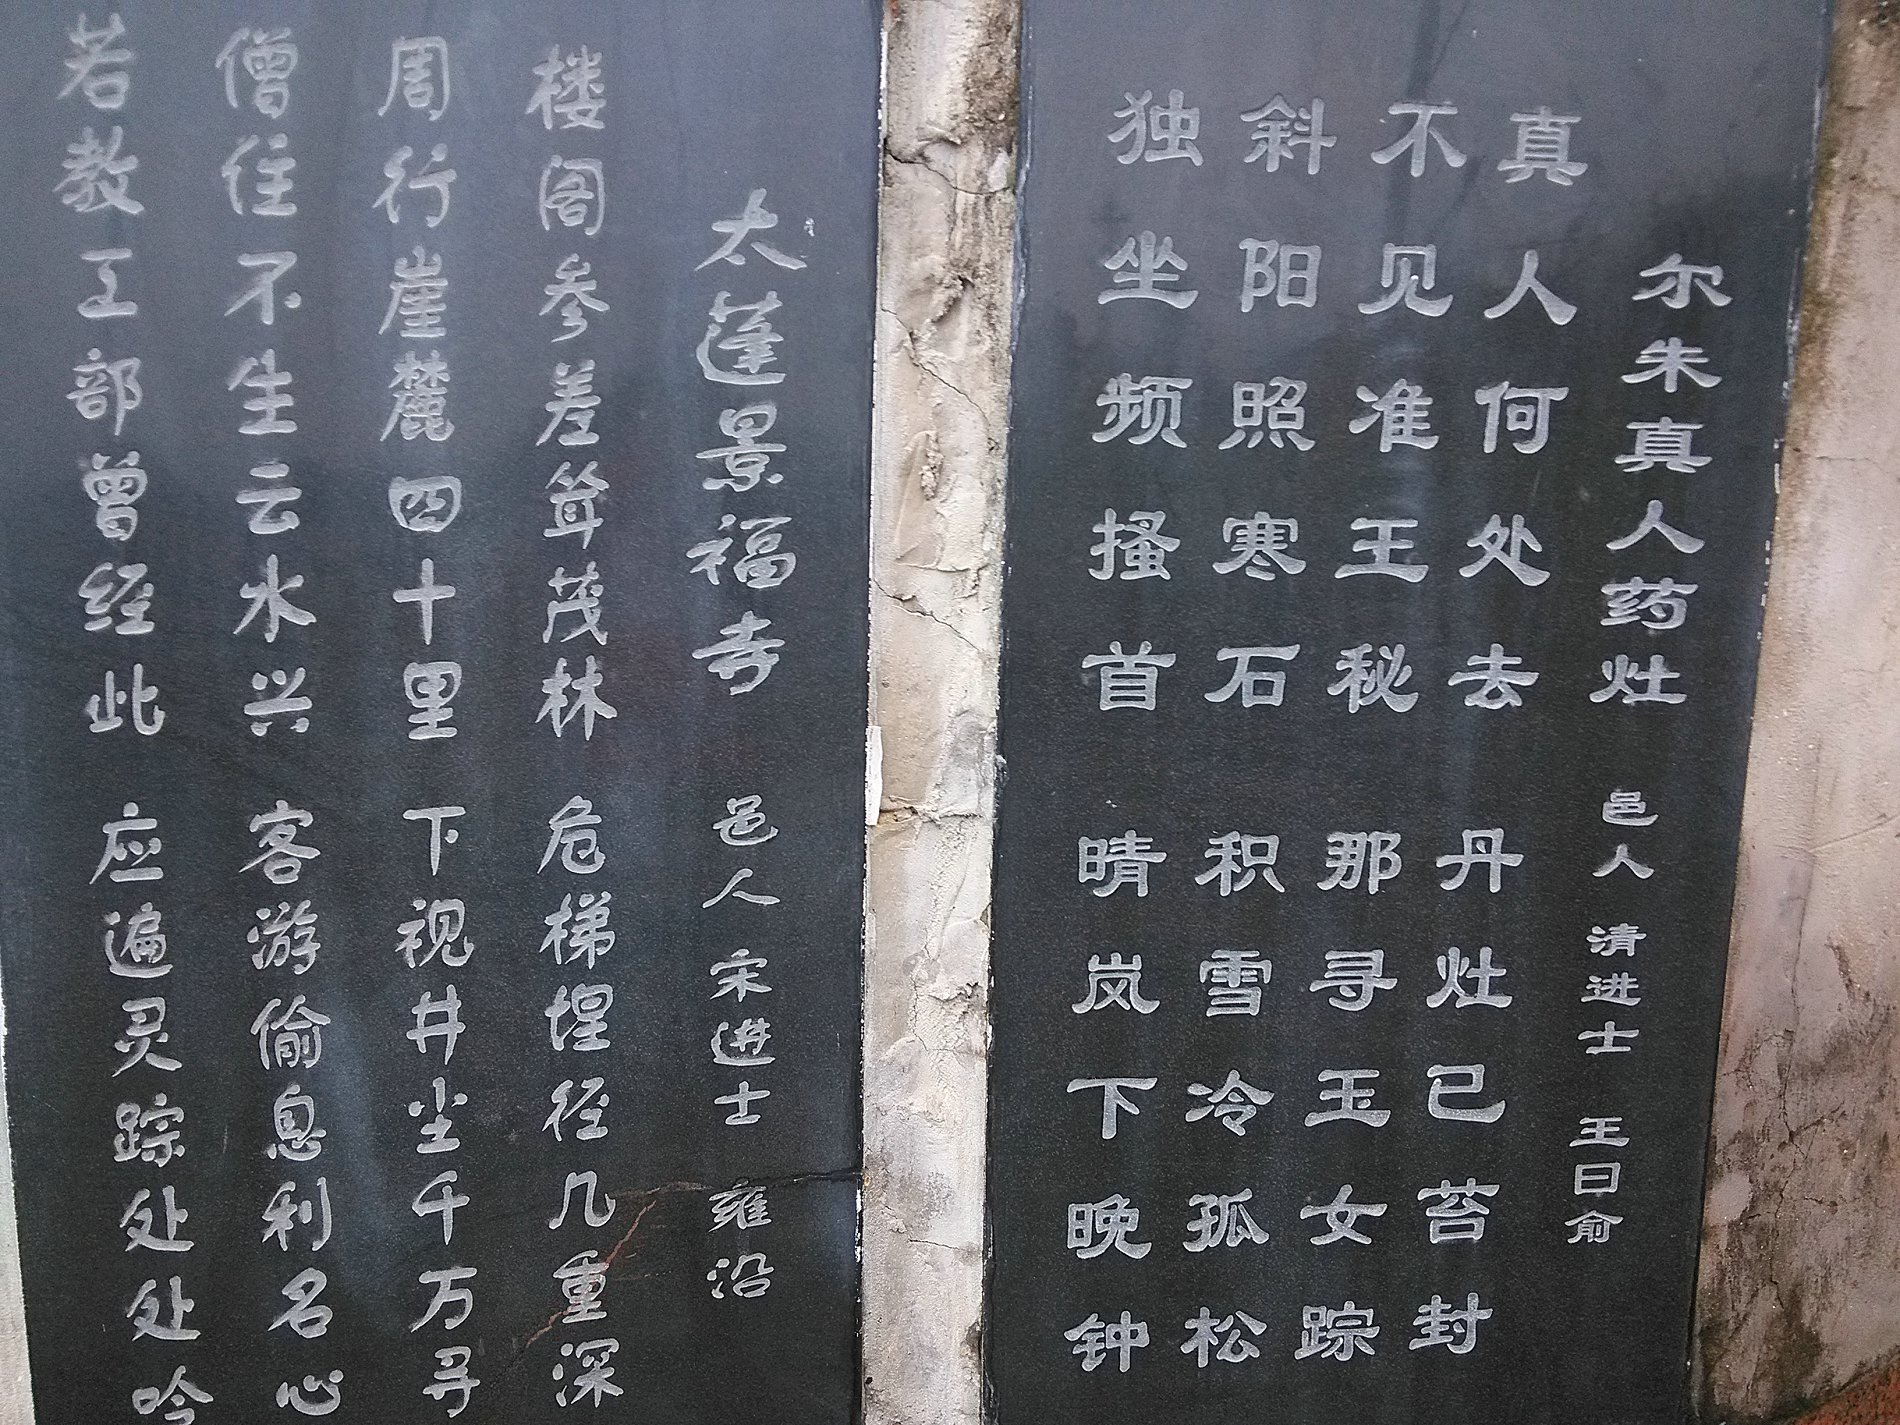 尔朱真人药灶 邑人 清进士 王曰俞
真人何处去 丹灶已苔封
不见准王秘 那寻玉女踪
斜阳照寒石 积雪冷孤松
独坐频搔首 晴岚下晚钟
太蓬景福寺 邑人 宋进士 雍沿
楼阁参差耸茂林 危梯埕径几重深
周行崖麓四十里 下视井尘千万寻
僧住不生云水兴 客游偷息利名心
若教工部曾经此 应遍灵踪处处吟